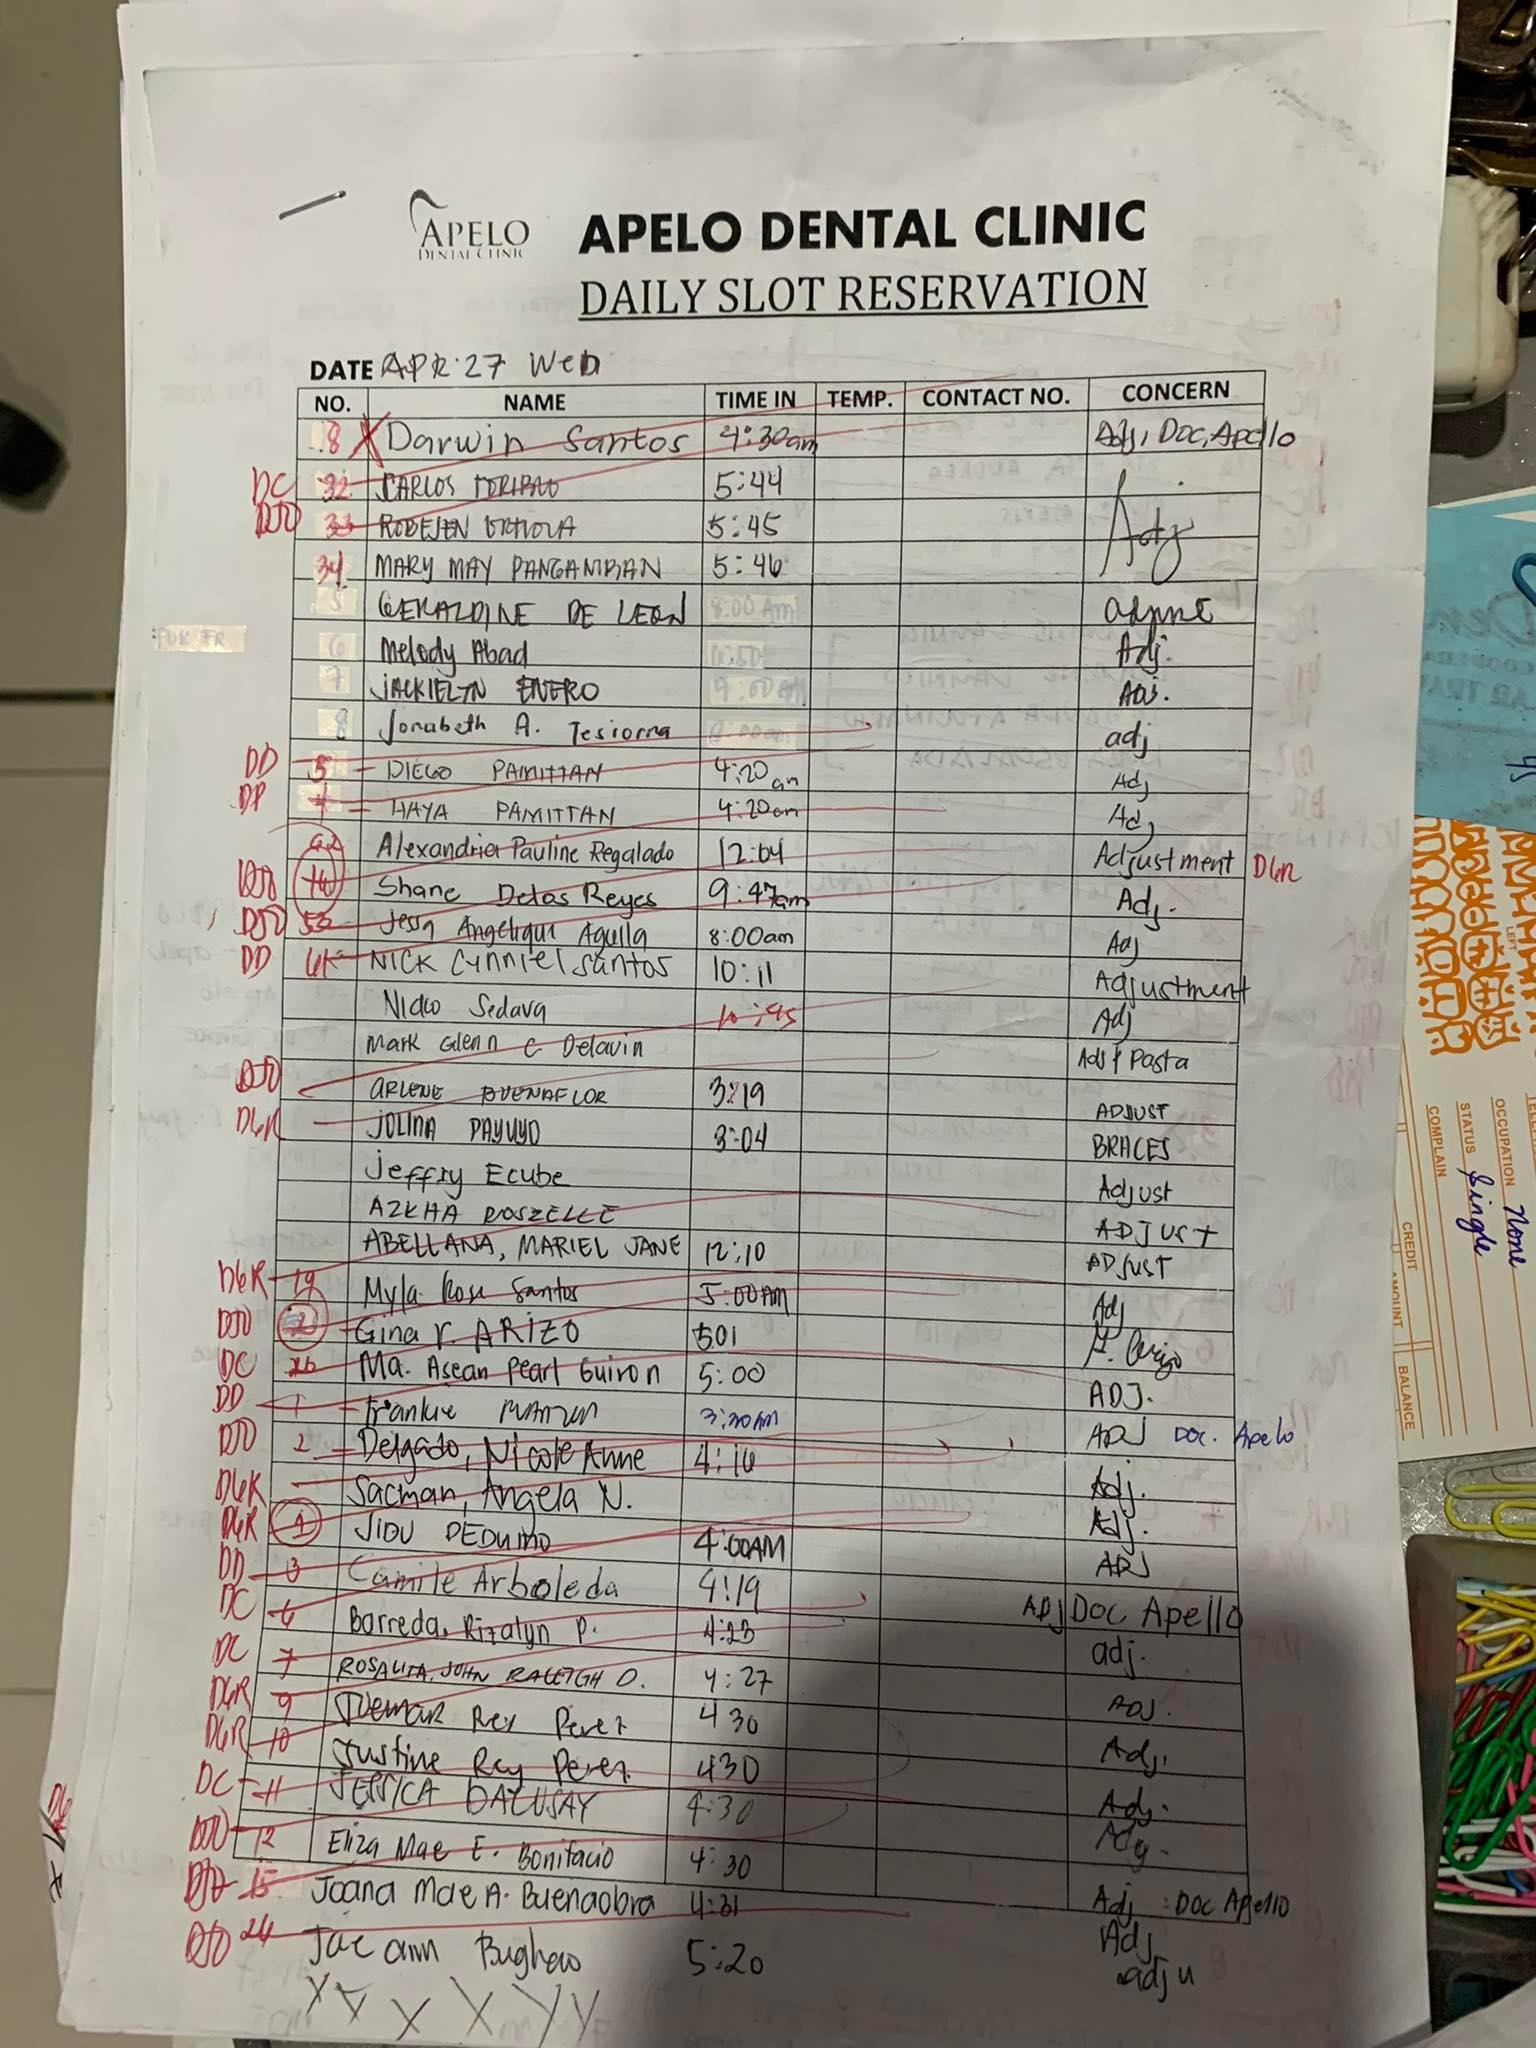 APELO
DENTAL CLINIC
APELO DENTAL CLINIC
DAILY SLOT RESERVATION
DATE APR. 27 Wed
NO. NAME TIME IN TEMP. CONTACT NO. CONCERN
8 X Darwin Santos 4:30am Adj, Doc, Apello
DC 32 CARLOS 5:44
DJD 33 5:45 Adj
34 MARY MAY PANGANIBAN 5:46
5 GERALDINE DE LEON 8:00 Am
6 Melody Abad Adj.
7 JACKIELYN ENERO ADJ.
8 Jonabeth A. Tesiorna adj
DD 5 DIEGO PAMITTAN 4:20 am Adj
DP 4 HAYA PAMITTAN 4:20am Adj
Alexandria Pauline Regalado 12:04 Adjustment DGR
DJD Shane Delos Reyes 9:47am Adj.
DJD 53 Jessa Angelique Aguila 8:00am Adj
DD NICK Cynniel Santos 10:11 Adjustment
Sedava 10:45 Adj
Mark Glenn C Delavin Adj & Pasta
DJD ARLENE BUENAFLOR 3:19 ADJUST
DGR JOLINA PAYUYO 3:04 BRACES
Jeffry Ecube Adjust
AZKHA ROSZELLE ADJUST
ABELLANA, MARIEL JANE 12:10 ADJUST
DGR 19 Myla Rose Santos 5:00AM Adj
DJD 2 Gina Y. ARIZO 501
DC 26 Ma. Asean Pearl Guiron 5:00 ADJ.
DD 1 Frankie 3:20AM ADJ Doc. Apelo
DJD 2 Delgado, Nicole Anne 4:16 Adj.
DGR Sacman, Angela N. Adj.
DGR 1 4:00AM ADJ
DD 3 Camile Arboleda 4:19 ADJ Doc Apello
DC 6 Barreda, Rizalyn P. 4:23 adj.
DC 7 ROSALITA, JOHN RALEIGH D. 4:27 ADJ.
DGR 9 Rey Perez 430 Adj.
DGR 10 Justine Rey Perez 430 Adj.
DC 11 JESSICA DALUSAY 4:30 Adj.
DJD 12 Eliza Mae E. Bonifacio 4:30
DJD 15 Joana Mae A. Buenaobra 4:31 Adj : Doc Apello
DJD 24 Jae ann 5:20 Adj
adju
X X X X Y Y
LEFT
OCCUPATION None
STATUS Single
COMPLAIN
CREDIT
AMOUNT
BALANCE